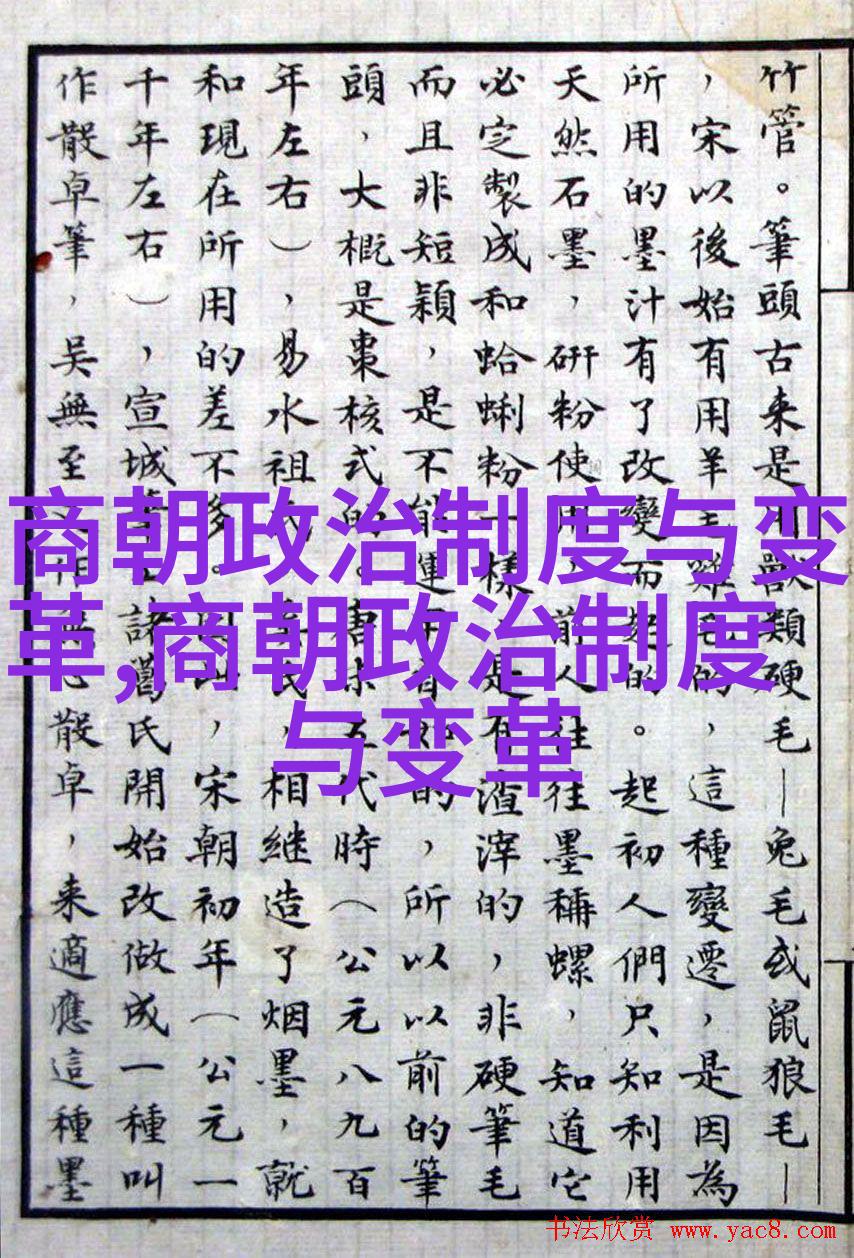 竹管。筆頭古来是用獸類硬毛—兔毛或鼠狼毛—
，宋以後始有用羊毛雞毛的，這種變遷，是因為
所用的墨汁有了改變而起的。起初人們只知利用
天然石墨，研粉使用，前人往往墨稱螺，知道它
必定製成和蛤蜊粉一樣，是有渣滓的，非硬筆毛
而且非短穎，是不能運用自如的，所以以前的筆
頭，大概是棗核式的。唐末五代時（公元八九百
年左右），易水祖氏氏，相継造了烟墨，就
和現在所用的差不多。，宋朝初年（公元一
千年左右），宣城諸葛氏開始改做成一種叫
作散卓筆，吳無至作散卓，来適應這種墨
商朝政治制度与变
革,商朝政治制度
与变革
书法欣赏 www.yac8.com